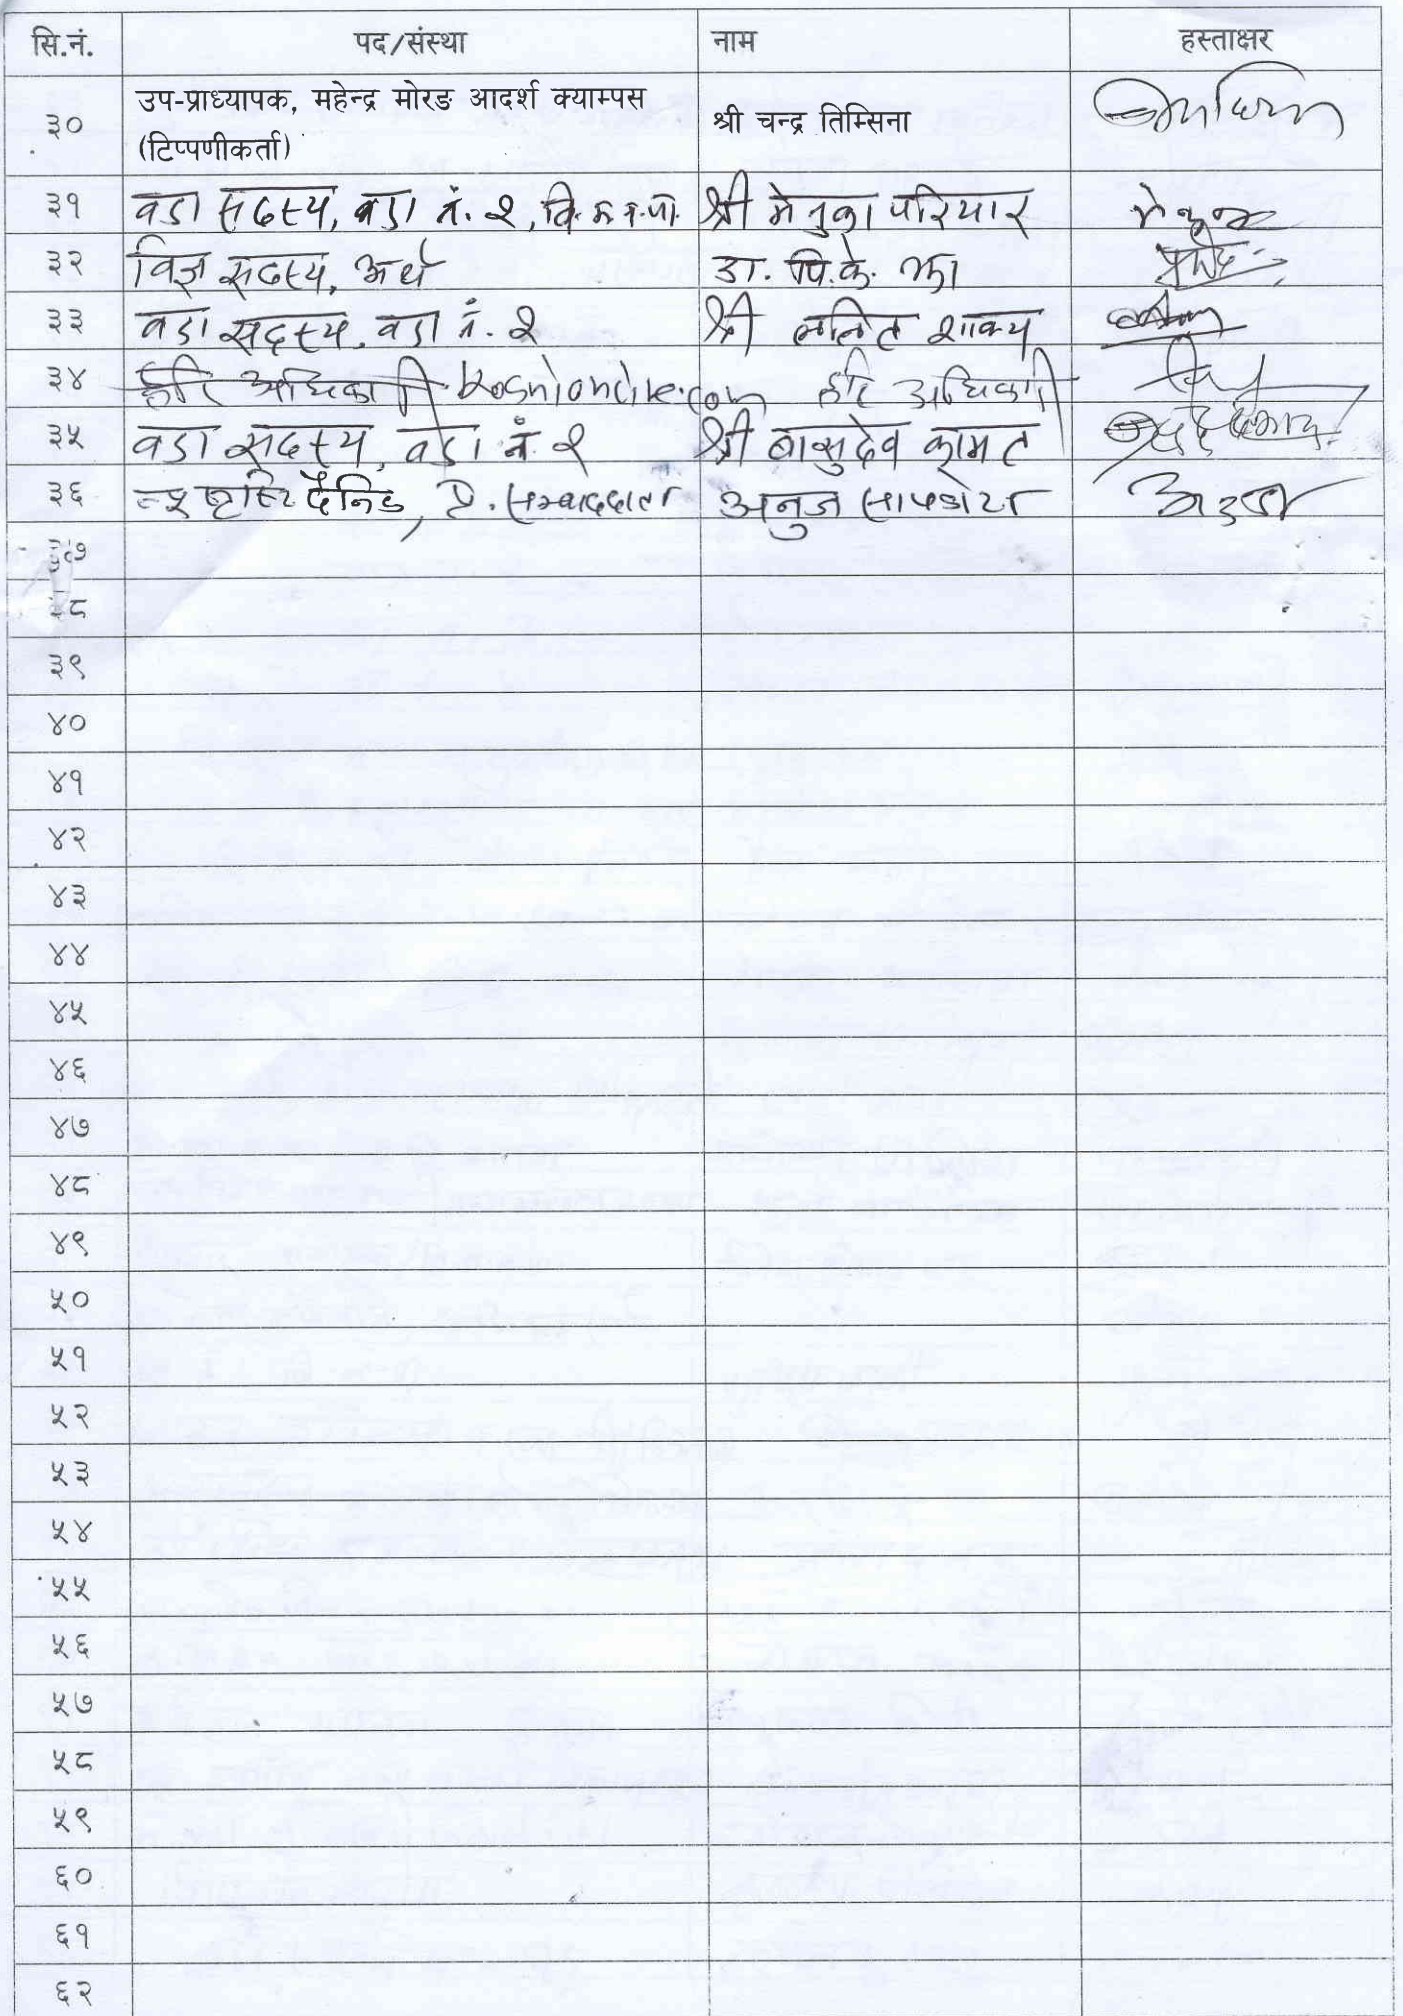 सि.नं. पद/संस्था नाम हस्ताक्षर
उप-प्राध्यापक, महेन्द्र मोरङ आदर्श क्याम्पस
३० श्री चन्द्र तिम्सिना
(टिप्पणीकर्ता)
३१ वडा सदस्य, वडा नं. २, वि.म.न.पा. श्री मेनुका परियार मेनुका
३२ विज्ञ सदस्य, अर्थ डा. पि.के. झा
३३ वडा सदस्य, वडा नं. २ श्री ललित शाक्य
३४ हरि अधिकारी हरि अधिकारी
३५ वडा सदस्य, वडा नं. २ श्री बासुदेव कामत
३६ दैनिक, प्र. सम्वाददाता अनुज सापकोटा
३७
३८
३९
४०
४१
४२
४३
४४
४५
४६
४७
४८
४९
५०
५१
५२
५३
५४
५५
५६
५७
५८
५९
६०
६१
६२